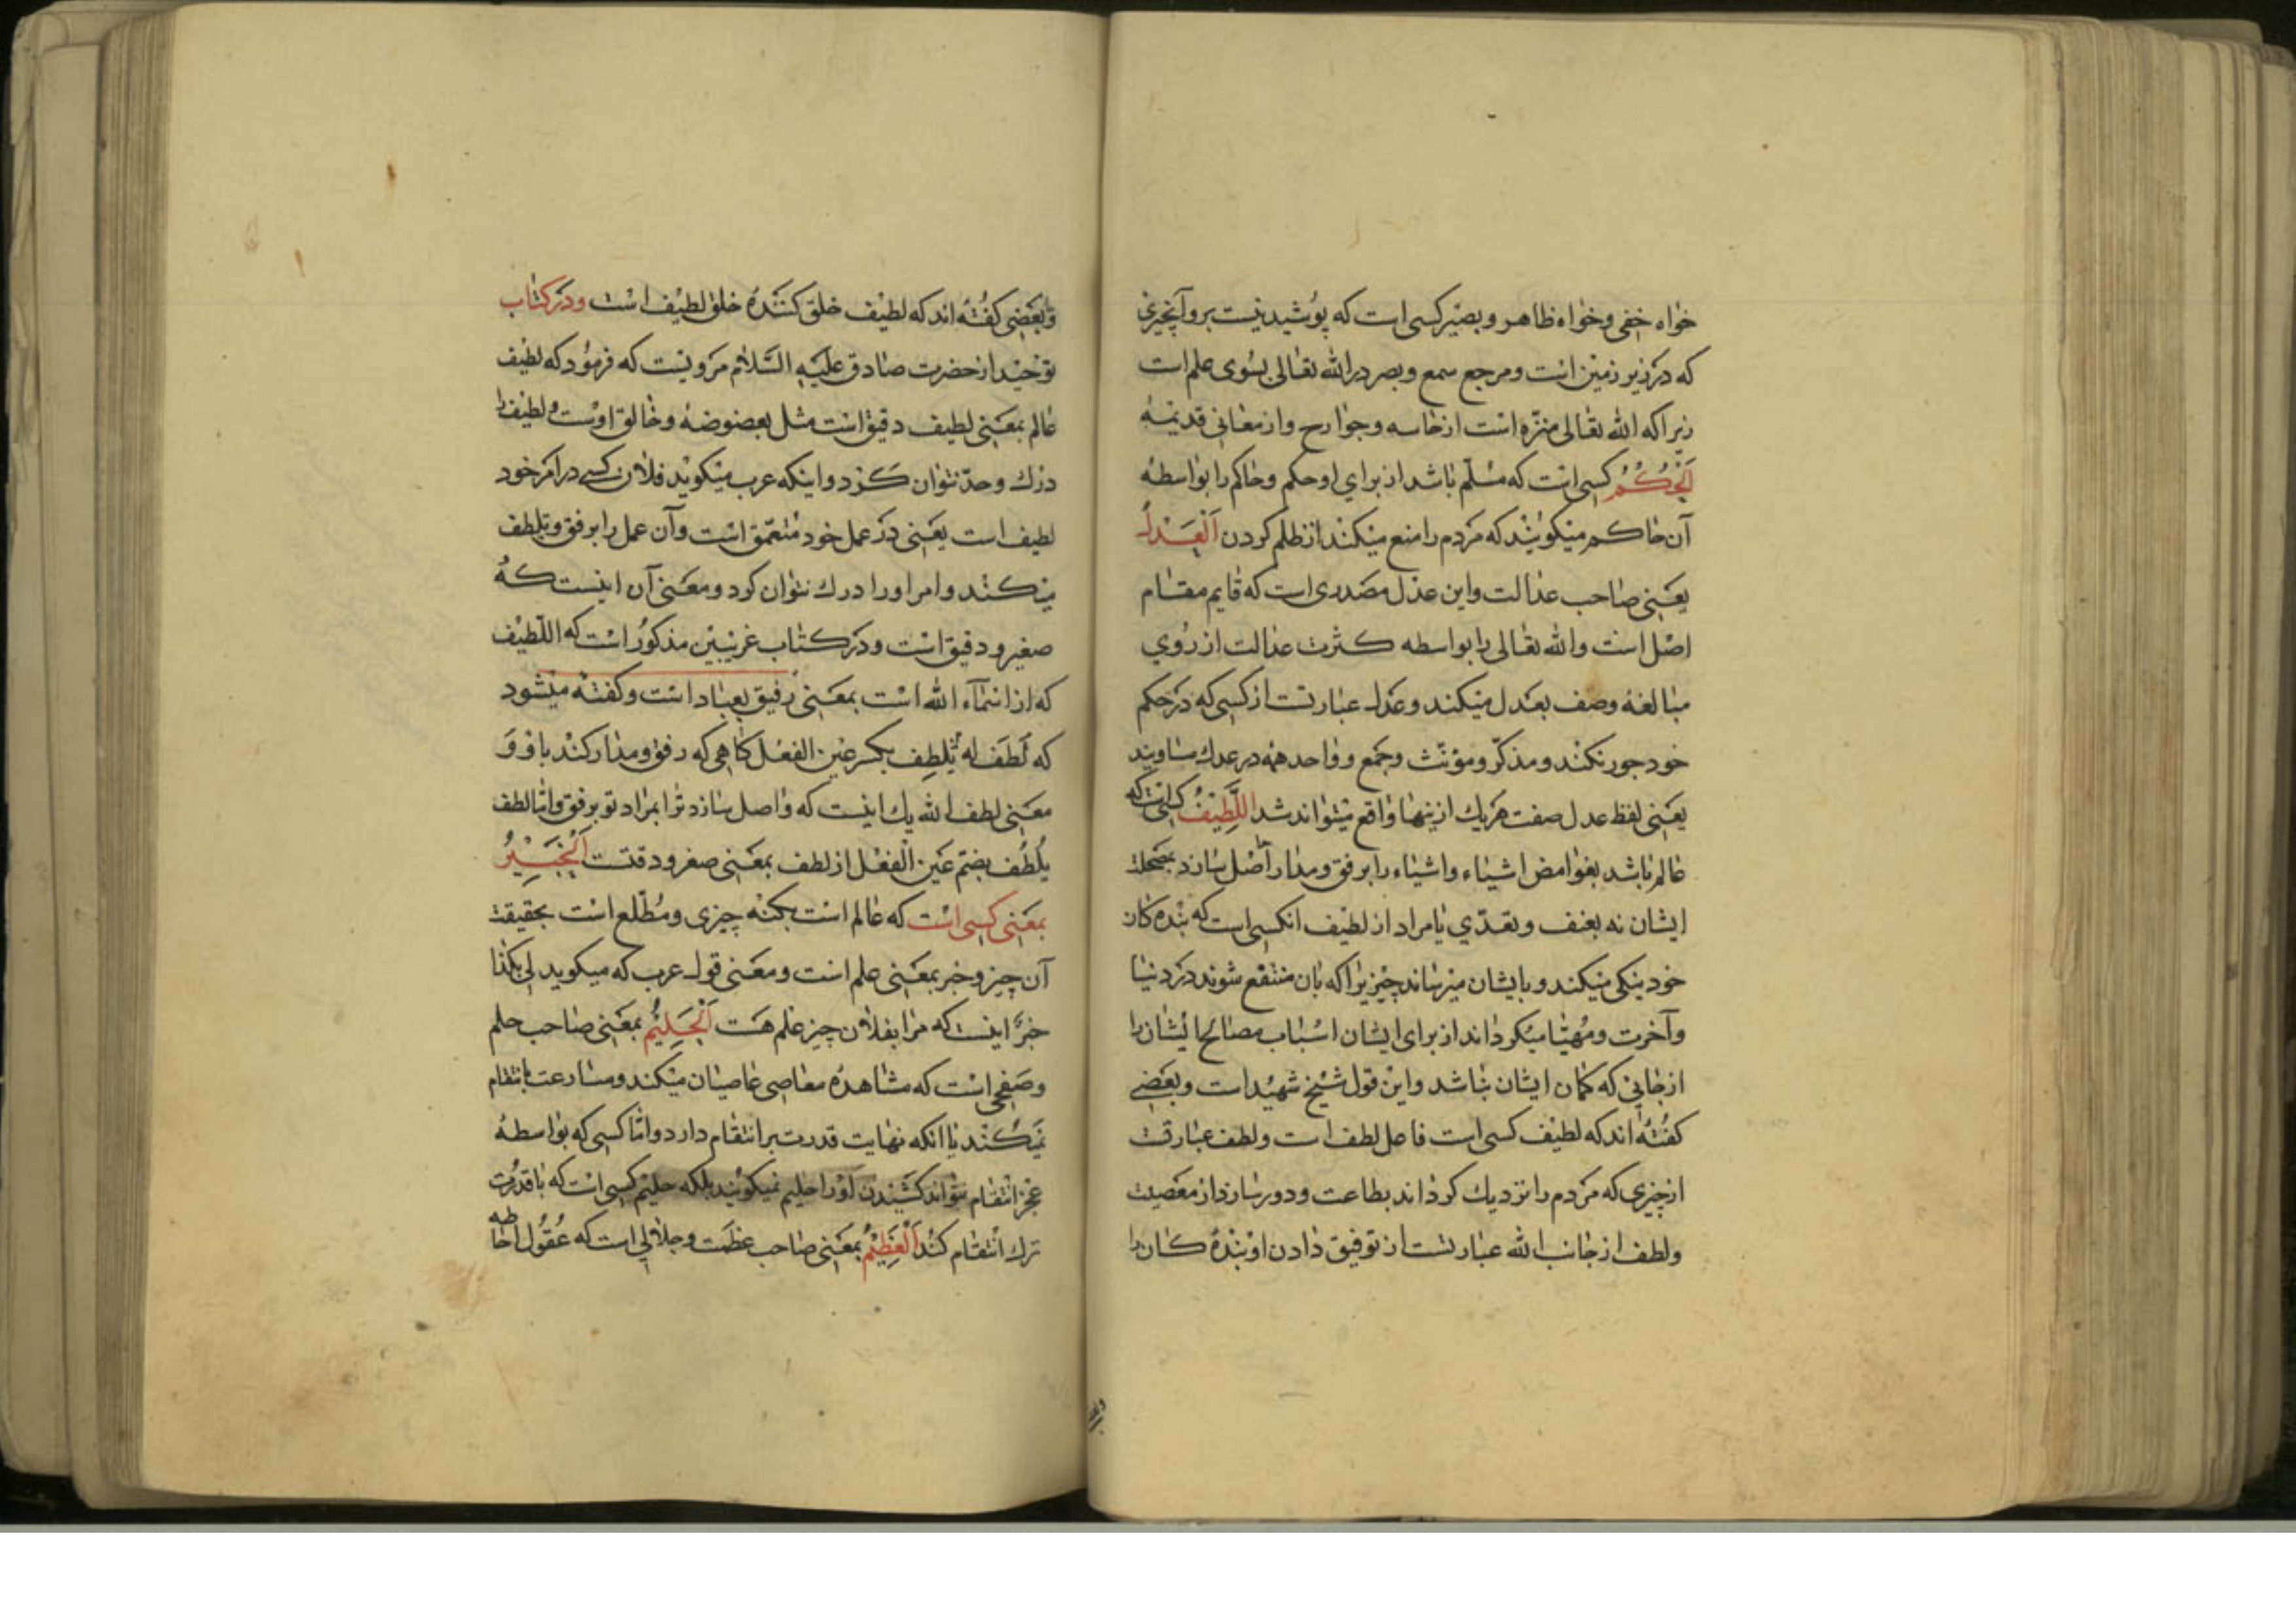 خواه خفی و خواه ظاهر و بصیر کسی است که پوشیده نیست برو آنچیزی
که در زیر زمین است و مرجع سمع و بصر در الله تعالی بسوی علم است
زیرا که الله تعالی منزّه است از حاسه و جوارح و از معانی قدیمه
اَلْحُكْمُ کسی است که مسلّم باشد از برای او حکم و حاکم را بواسطهٔ
آن حاکم میکویند که مردم را منع میکند از ظلم کردن اَلْعَدْلُ
یعنی صاحب عدالت و این عدل مصدری است که قایم مقام
اصل است و الله تعالی را بواسطه کثرت عدالت از روی
مبالغه وصف بعدل میکند و عدل عبارتست از کسی که در حکم
خود جور نکند و مذکّر و مؤنّث و جمع و واحد همه در عدل مساویند
یعنی لفظ عدل صفت هر یك ازینها واقع میتواند شد اَللَّطِيْفُ کسی است که
عالم باشد بغوامض اشیاء و اشیاء را برفق و مدارا صل سازد بمصلحت
ایشان نه بعنف و تعدّی یا مراد از لطیف انکسی است که بنده کان
خود نیکی میکند و بایشان میرساند چیزیرا که بان منتفع شوند در دنیا
و آخرت و مهیّا میکرداند از برای ایشان اسباب مصالح ایشانرا
از جایی که کمان ایشان نباشد و این قول شیخ شهید است و بعضی
کفته اند که لطیف کسی است فاعل لطف است و لطف عبارتست
از چیزی که مردم را نزدیك کرداند بطاعت و دور سازد از معصیت
و لطف از جانب الله عبارتست از توفیق دادن او بنده کانرا
و بعضی کفته اند که لطیف خلق کننده خلق لطیف است و در کتاب
توحید از حضرت صادق علیه السّلام مرویست که فرمود که لطیف
عالم بمعنی لطیف دقیق است مثل بعوضه و خالق اوست و لطیف را
درك و حدّ نتوان کرد و اینکه عرب میکوید فلان کسی در امر خود
لطیف است یعنی در عمل خود متعمّق است و آن عمل را برفق و تلطف
میکند و امر او را درك نتوان کرد و معنی آن اینست که
صغیر و دقیق است و در کتاب غریبین مذکور است که اللّطیف
که از اسماء الله است بمعنی رفیق بعباد است و کفته میشود
که لَطَفَ لَهُ یَلْطِف بکسر عین الفعل کاهی که رفق و مدارا کند با او و
معنی لطف الله بك اینست که واصل سازد ترا بمراد تو برفق و امّا لطف
یَلطُف بضمّ عین الفعل از لطف بمعنی صغر و دقتت اَلْخَبِيْرُ
بمعنی کسی است که عالم است بکنه چیزی و مطّلع است بحقیقت
آن چیز و خبر بمعنی علم است و معنی قول عرب که میکوید لی بکذا
خبرٌ اینست که مرا بفلان چیز علم هست اَلْحَلِيْمُ بمعنی صاحب حلم
و صفحی است که مشاهده معاصی عاصیان میکند و مسارعت بانتقام
نمیکند با انکه نهایت قدرت بر انتقام دارد و امّا کسی که بواسطهٔ
عجز انتقام نتواند کشیدن او را حلیم نمیکویند بلکه حلیم کسی است که با قدرت
ترك انتقام کند اَلْعَظِيْمُ بمعنی صاحب عظمت و جلالی است که عقول احاطه